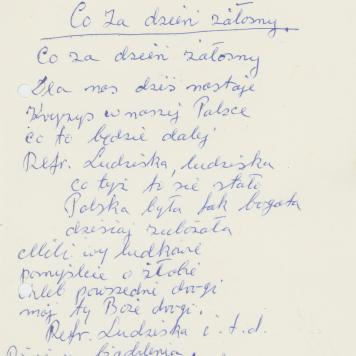 Co za dzień żałosny.
Co za dzień żałosny
Dla nas dziś nastaje
Kryzys w naszej Polsce
co to będzie dalej
Refr. Ludziska, ludziska
co tyż to sie stało
Polska była tak bogata
dzisiaj zubożała
Mili wy ludkowie
pomyślcie o żłobie
Chleb powszedni drogi
mój ty Boże drogi.
Refr. Ludziska i.t.d.